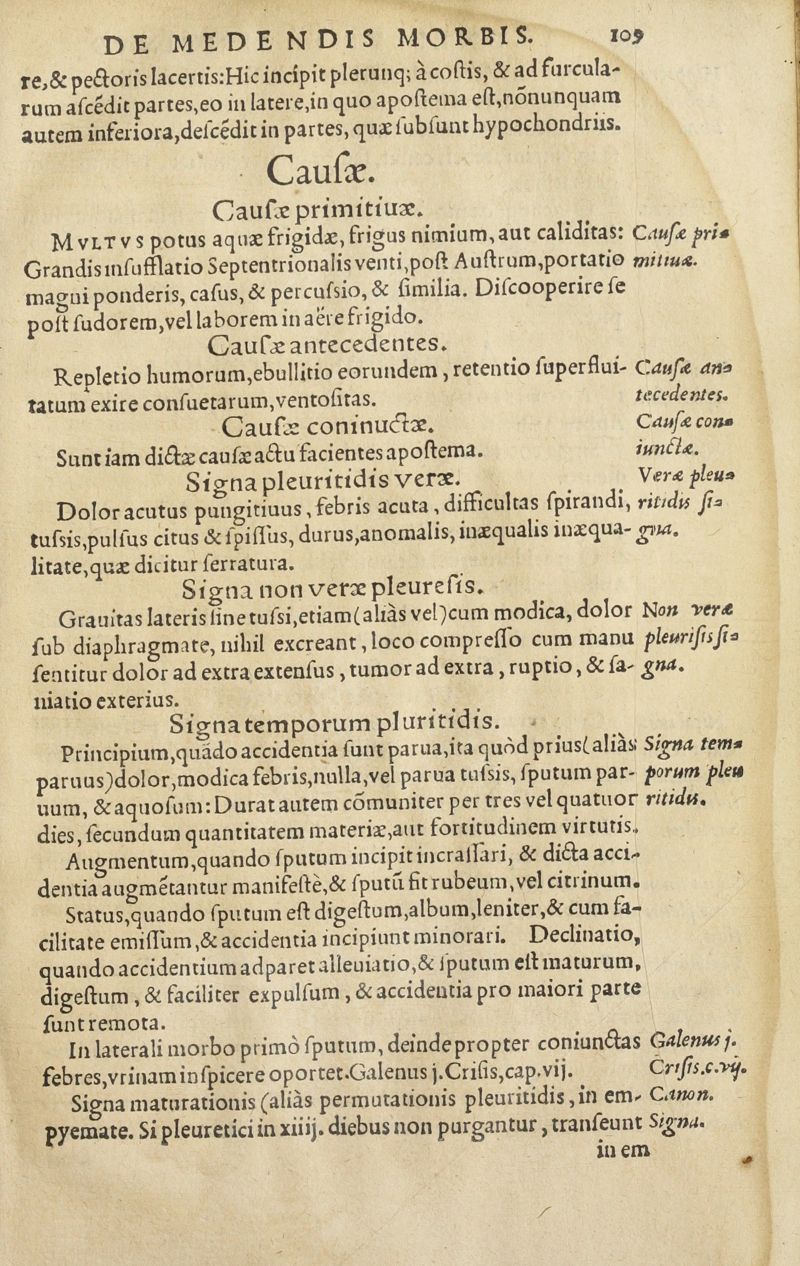 DE MEDENDIS MORBIS. 109
re,& pectoris lacertis:Hic incipit plerunq; à costis, & ad furcula-
rum ascédit partes,eo in latere,in quo apostema est,nõnunquam
autem inferiora,descédit in partes, quæ subsunt hypochondriis.
Causæ.
Causæ primitiuæ.
MVLTVS potus aquæ frigidæ, frigus nimium, aut caliditas: Causæ pri-
Grandis insufflatio Septentrionalis venti,post Austrum,portatio mitiuæ.
magni ponderis, casus, & percussio, & similia. Discooperire se
post sudorem,vel laborem in aëre frigido.
Causæ antecedentes.
Repletio humorum,ebullitio eorundem, retentio superflui- Causæ an-
tatum exire consuetarum,ventositas. tecedentes.
Causæ coninuctæ. Causæ con-
Sunt iam dictæ causæ actu facientes apostema. iunctæ.
Signa pleuritidis veræ. Veræ pleu-
Dolor acutus pungitiuus, febris acuta, difficultas spirandi, ritidis si-
tussis,pulsus citus & spissus, durus,anomalis, inæqualis inæqua- gna.
litate,quæ dicitur serratura.
Signa non veræ pleuresis.
Grauitas lateris sine tussi,etiam(aliàs vel)cum modica, dolor Non veræ
sub diaphragmate, nihil excreant, loco compresso cum manu pleurisis si-
sentitur dolor ad extra extensus, tumor ad extra, ruptio, & sa- gna.
niatio exterius.
Signa temporum pluritidis.
Principium,quãdo accidentia sunt parua,ita quòd prius(aliàs Signa tem-
paruus)dolor,modica febris,nulla,vel parua tussis, sputum par- porum pleu
uum, & aquosum: Durat autem cõmuniter per tres vel quatuor ritidis.
dies, secundum quantitatem materiæ,aut fortitudinem virtutis.
Augmentum,quando sputum incipit incrassari, & dicta acci-
dentia augmétantur manifestè,& sputũ fit rubeum,vel citrinum.
Status,quando sputum est digestum,album,leniter,& cum fa-
cilitate emissum,& accidentia incipiunt minorari. Declinatio,
quando accidentium adparet alleuiatio,& sputum est maturum,
digestum, & faciliter expulsum, & accidentia pro maiori parte
sunt remota.
In laterali morbo primò sputum, deinde propter coniunctas Galenus j.
febres,vrinam inspicere oportet.Galenus j.Crisis,cap.vij. Crisis.c.vij.
Signa maturationis (aliàs permutationis pleuritidis, in em- Canon.
pyemate. Si pleuretici in xiiij. diebus non purgantur, transeunt Signa.
in em